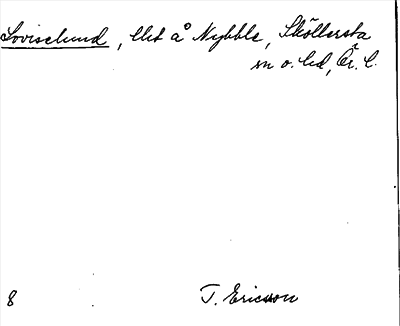 Loviselund, lht å Nybble, Sköllersta
sn o. hd, Ör. l.
8 T. Ericsson